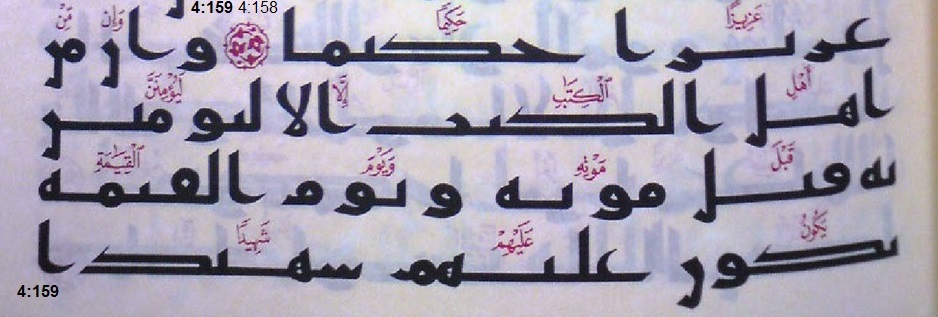 4:159 4:158
عَزِيزًا حَكِيمًا وَإِن مِّن
عزيزا حكيما وان من
أَهْلِ ٱلْكِتَٰبِ إِلَّا لَيُؤْمِنَنَّ
اهل الكتب الا ليومنن
قَبْلَ مَوْتِهِ وَيَوْمَ ٱلْقِيَٰمَةِ
به قبل موته ويوم القيمه
يَكُونُ عَلَيْهِمْ شَهِيدًا
يكون عليهم شهيدا
4:159